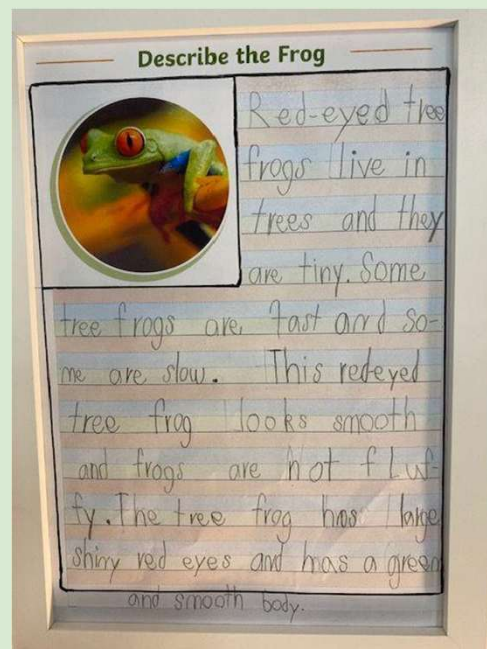 Describe the Frog
Red-eyed tree
frogs live in
trees and they
are tiny. Some
tree frogs are fast and so-
me are slow. This red-eyed
tree frog looks smooth
and frogs are not fluf-
fy. The tree frog has large
shiny red eyes and has a green
and smooth body.